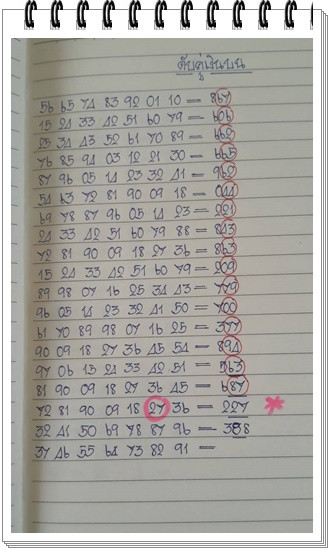 ดับคู่เงินบน
56 65 74 83 92 01 10 = 867
15 24 33 42 51 60 79 = 606
25 34 43 52 61 70 89 = 662
76 85 94 03 12 21 30 = 665
87 96 05 14 23 32 41 = 962
54 63 72 81 90 09 18 = 044
69 78 87 96 05 14 23 = 221
24 33 42 51 60 79 88 = 843
72 81 90 09 18 27 36 = 863
15 24 33 42 51 60 79 = 209
89 98 07 16 25 34 43 = 779
96 05 14 23 32 41 50 = 700
61 70 89 98 07 16 25 = 377
90 09 18 27 36 45 54 = 894
97 06 15 24 33 42 51 = 563
81 90 09 18 27 36 45 = 687
72 81 90 09 18 27 36 = 227 *
32 41 50 69 78 87 96 =
37 46 55 64 73 82 91 =